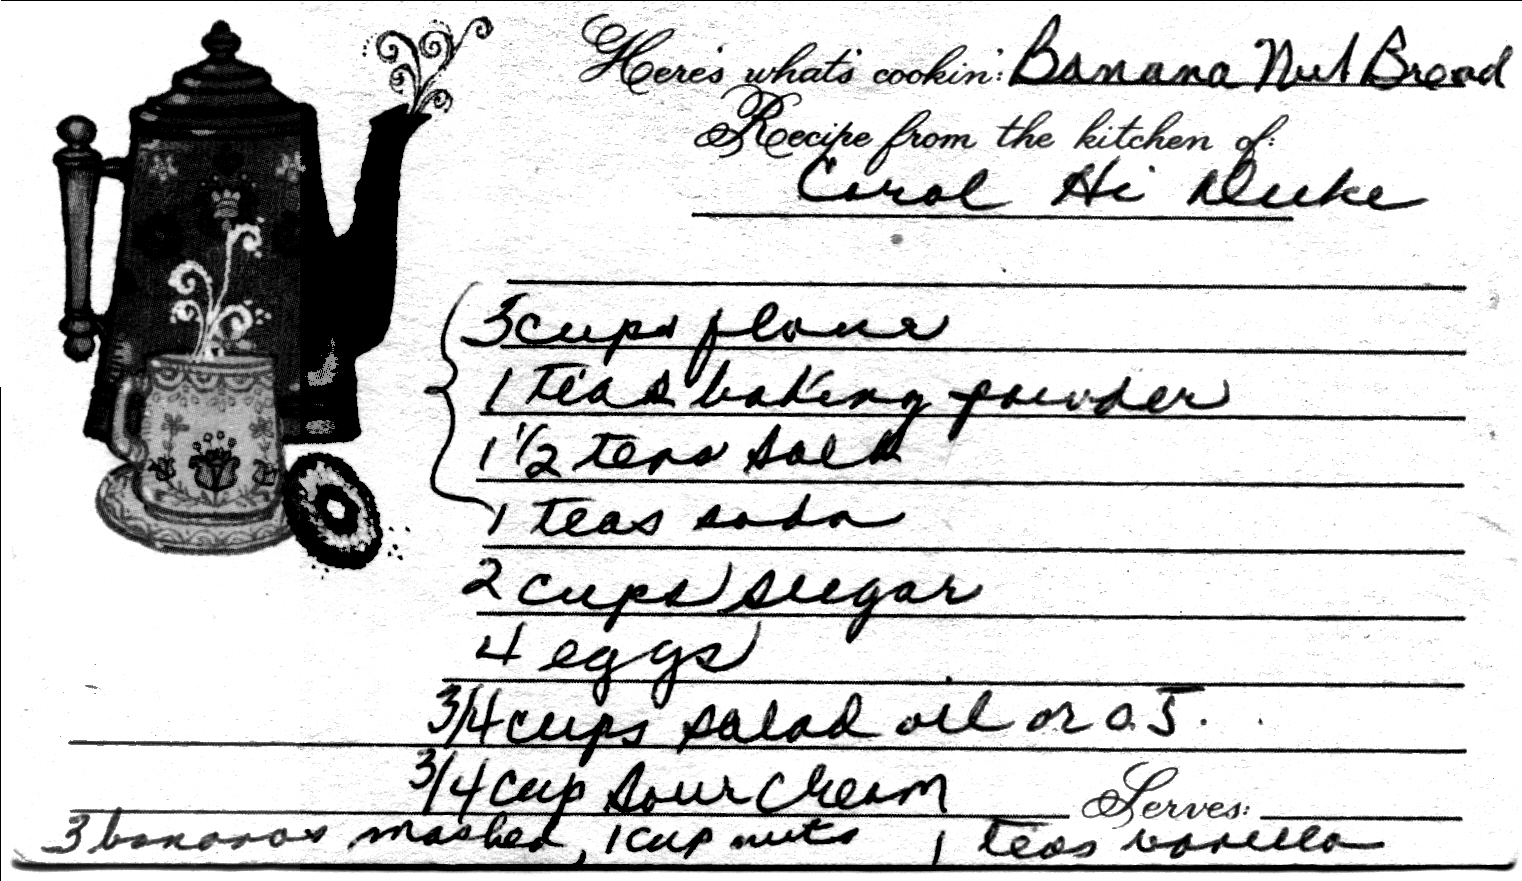 Here's what's cookin': Banana Nut Bread
Recipe from the kitchen of:
Carol Hi Duke
3 cups flour
1 teas baking powder
1 1/2 teas salt
1 teas soda
2 cups sugar
4 eggs
3/4 cups salad oil or O.J.
3/4 cup sour cream
Serves:
3 bananas mashed, 1 cup nuts 1 teas vanilla